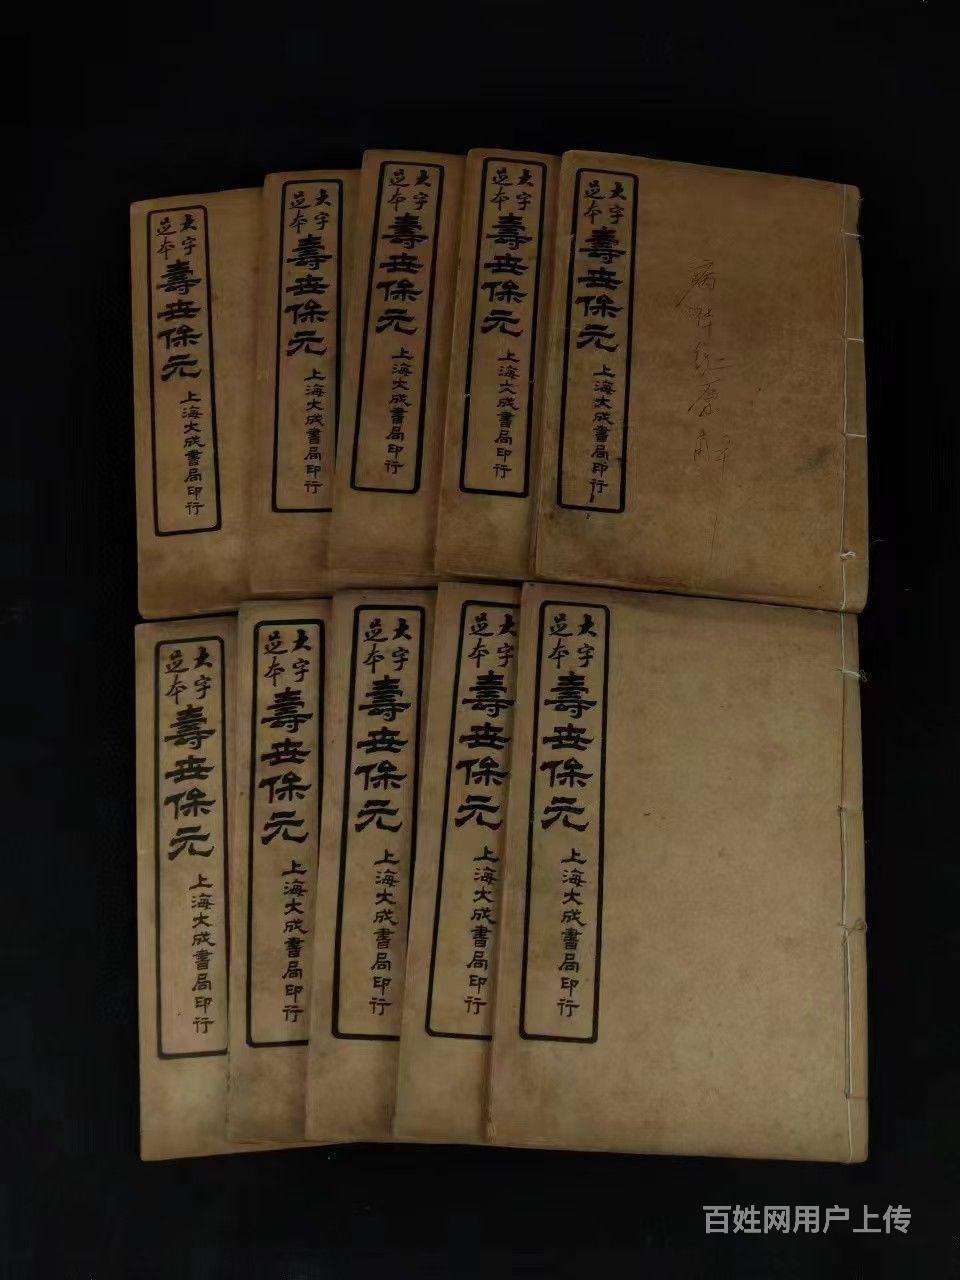 大字
足本
壽世保元
上海大成書局印行
大字
足本
壽世保元
上海大成書局印行
大字
足本
壽世保元
上海大成書局印行
大字
足本
壽世保元
上海大成書局印行
大字
足本
壽世保元
上海大成書局印行
大字
足本
壽世保元
上海大成書局印行
大字
足本
壽世保元
上海大成書局印行
大字
足本
壽世保元
上海大成書局印行
大字
足本
壽世保元
上海大成書局印行
大字
足本
壽世保元
上海大成書局印行
百姓网用户上传